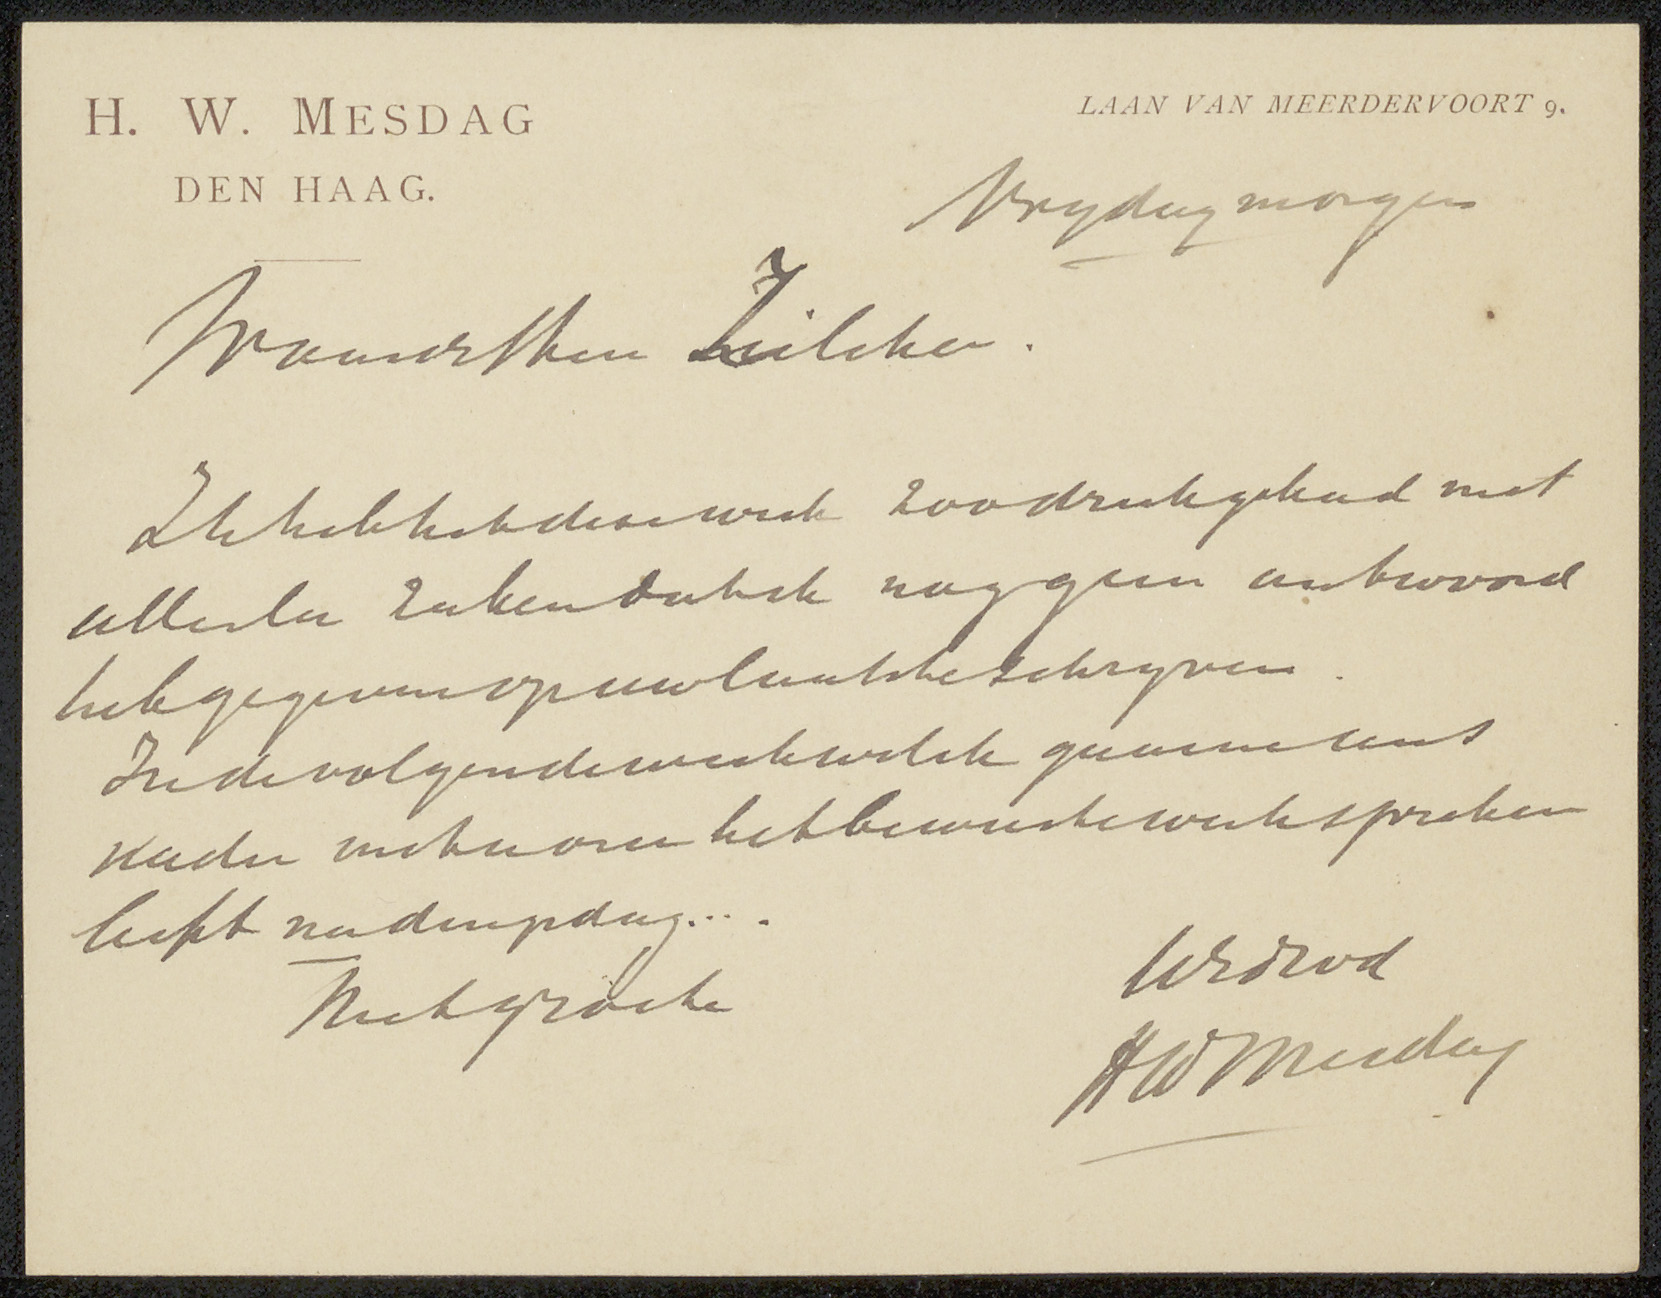 H. W. MESDAG
DEN HAAG.
LAAN VAN MEERDERVOORT 9.
Vrydag morgen
Waarde Heer Zilcken.
Ik heb het deze week zoo druk gehad met
allerlei zaken dat ik nog geen antwoord
heb gegeven op uw laatste schryven.
In de volgende week wil ik gaarne eens
nader met u over het bewuste werk spreken
liefst
Met groete
Uw
HWMesdag